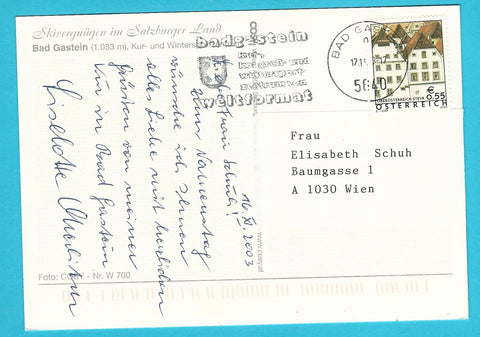 Skivergnügen im Salzburger Land
Bad Gastein (1.083 m), Kur- und Winters
badgastein
kur-
kongreß- und
wintersport-
zentrum von
weltformat
BAD GAS
5640
€ 0.55
ÖSTERREICH
Frau
Elisabeth Schuh
Baumgasse 1
A 1030 Wien
16. XI. 2003
Frau Schuh!
Zum Namenstag
wünsche ich Ihnen
alles Liebe mit herzlichen
Grüßen von meiner
Kur in Bad Gastein
Liselotte
www.cosy.at
Foto: COSY - Nr. W 700